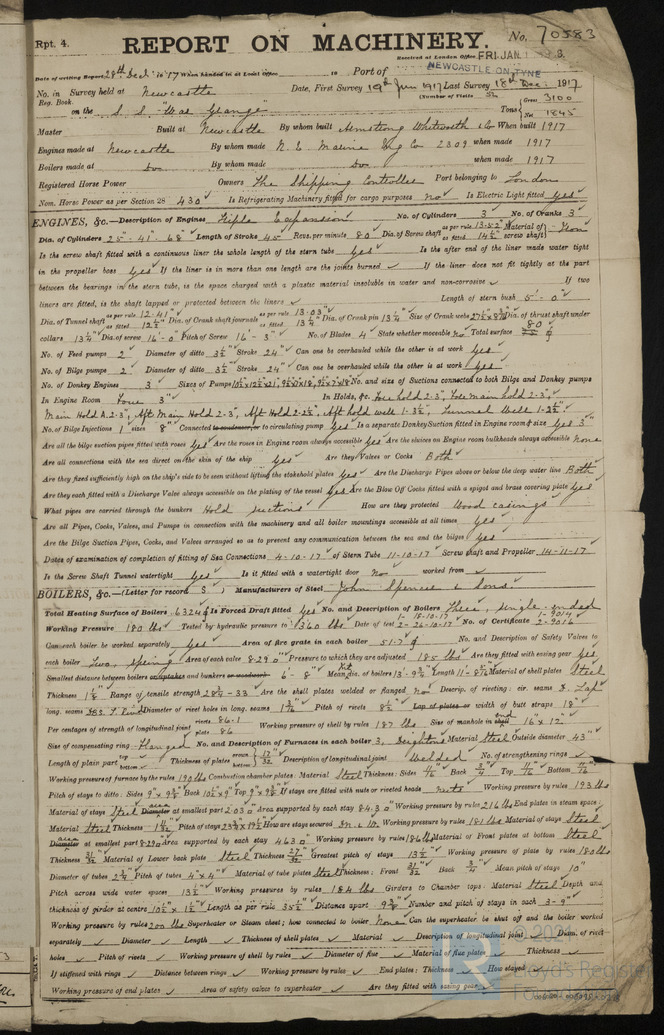 Rpt. 4.
REPORT ON MACHINERY.
No. 70583
Received at London Office FRI. JAN
Date of writing Report 28th Decr 1917 When handed in at Local Office 19 Port of NEWCASTLE ON TYNE
No. in Survey held at Newcastle Date, First Survey 19th Jan 1917 Last Survey 18th Dec. 1917
Reg. Book. (Number of Visits 52
on the S.S. "War Grange" Tons { Gross 3100 Net 1845
Master Built at Newcastle By whom built Armstrong Whitworth & Co When built 1917
Engines made at Newcastle By whom made N. E. Marine Eng Co 2309 when made 1917
Boilers made at Do By whom made Do when made 1917
Registered Horse Power Owners The Shipping Controller Port belonging to London
Nom. Horse Power as per Section 28 430 Is Refrigerating Machinery fitted for cargo purposes No Is Electric Light fitted Yes
ENGINES, &c.—Description of Engines Triple Expansion No. of Cylinders 3 No. of Cranks 3
Dia. of Cylinders 25"-41"-68" Length of Stroke 45 Revs. per minute 80 Dia. of Screw shaft as per rule 13.52" as fitted 14½" Material of screw shaft Iron
Is the screw shaft fitted with a continuous liner the whole length of the stern tube Yes Is the after end of the liner made water tight
in the propeller boss Yes If the liner is in more than one length are the joints burned If the liner does not fit tightly at the part
between the bearings in the stern tube, is the space charged with a plastic material insoluble in water and non-corrosive If two
liners are fitted, is the shaft lapped or protected between the liners Length of stern bush 5'-0"
Dia. of Tunnel shaft as per rule 12.41" as fitted 12½" Dia. of Crank shaft journals as per rule 13.03" as fitted 13¼" Dia. of Crank pin 13¼" Size of Crank webs Dia. of thrust shaft under
collars 13¼" Dia. of screw 16'-0" Pitch of Screw 16'-3" No. of Blades 4 State whether moveable No Total surface 80
No. of Feed pumps 2 Diameter of ditto 3½" Stroke 24" Can one be overhauled while the other is at work Yes
No. of Bilge pumps 2 Diameter of ditto 3½" Stroke 24" Can one be overhauled while the other is at work Yes
No. of Donkey Engines 3 Sizes of Pumps No. and size of Suctions connected to both Bilge and Donkey pumps
In Engine Room Four 3" In Holds, &c. Fore hold 2-3", Fore main hold 2-3",
Main Hold A. 2-3", Aft Main Hold 2-3", Aft Hold 2-2½", Aft hold well 1-3½", Tunnel Well 1-2½"
No. of Bilge Injections 1 sizes 8" Connected to condenser, or to circulating pump Yes Is a separate Donkey Suction fitted in Engine room & size Yes 3"
Are all the bilge suction pipes fitted with roses Yes Are the roses in Engine room always accessible Yes Are the sluices on Engine room bulkheads always accessible None
Are all connections with the sea direct on the skin of the ship Yes Are they Valves or Cocks Both
Are they fixed sufficiently high on the ship's side to be seen without lifting the stokehold plates Yes Are the Discharge Pipes above or below the deep water line Both
Are they each fitted with a Discharge Valve always accessible on the plating of the vessel Yes Are the Blow Off Cocks fitted with a spigot and brass covering plate Yes
What pipes are carried through the bunkers Hold suctions How are they protected Wood casings
Are all Pipes, Cocks, Valves, and Pumps in connection with the machinery and all boiler mountings accessible at all times Yes
Are the Bilge Suction Pipes, Cocks, and Valves arranged so as to prevent any communication between the sea and the bilges Yes
Dates of examination of completion of fitting of Sea Connections 4-10-17 of Stern Tube 11-10-17 Screw shaft and Propeller 14-11-17
Is the Screw Shaft Tunnel watertight Yes Is it fitted with a watertight door No worked from
BOILERS, &c.—(Letter for record S) Manufacturers of Steel John Spencer & Sons
Total Heating Surface of Boilers 6324 Is Forced Draft fitted Yes No. and Description of Boilers Three, single-ended
Working Pressure 180 lbs Tested by hydraulic pressure to 360 lbs Date of test 1-18-10-17 2-26-10-17 No. of Certificate 1-9014 2-9016
Can each boiler be worked separately Yes Area of fire grate in each boiler 51.7 No. and Description of Safety Valves to
each boiler Two, Spring Area of each valve 8.290 Pressure to which they are adjusted 185 lbs Are they fitted with easing gear Yes
Smallest distance between boilers or uptakes and bunkers or woodwork 6'-8" Mean dia. of boilers 13'-9¾" Length 11'-8⅞" Material of shell plates Steel
Thickness 1⅛ Range of tensile strength 28¾-33 Are the shell plates welded or flanged No Descrip. of riveting: cir. seams D. Lap
long. seams Diameter of rivet holes in long. seams 1 3/16 Pitch of rivets 8½" Lap of plates or width of butt straps 18"
Per centages of strength of longitudinal joint rivets 86.1 plate 86 Working pressure of shell by rules 187 lbs Size of manhole in end 16" x 12"
Size of compensating ring Flanged No. and Description of Furnaces in each boiler 3, Deighton Material Steel Outside diameter 43"
Length of plain part top bottom Thickness of plates crown bottom 17/32 Description of longitudinal joint Welded No. of strengthening rings
Working pressure of furnace by the rules 190 lbs Combustion chamber plates: Material Steel Thickness: Sides 11/16 Back 3/4 Top 11/16 Bottom 11/16
Pitch of stays to ditto: Sides 9" x 9⅞" Back 10½" x 9" Top 9" x 9⅞" If stays are fitted with nuts or riveted heads Nuts Working pressure by rules 193 lbs
Material of stays Steel area at smallest part 2.03 Area supported by each stay 84.3 Working pressure by rules 216 lbs End plates in steam space:
Material Steel Thickness 1 1/32 Pitch of stays How are stays secured Working pressure by rules 181 lbs Material of stays Steel
area at smallest part 8.29 Area supported by each stay 463 Working pressure by rules 186 lbs Material of Front plates at bottom Steel
Thickness 31/32 Material of Lower back plate Steel Thickness 27/32 Greatest pitch of stays 13½" Working pressure of plate by rules 180 lbs
Diameter of tubes 2¾ Pitch of tubes 4" x 4" Material of tube plates Steel Thickness: Front 31/32 Back 3/4 Mean pitch of stays 10"
Pitch across wide water spaces 13½" Working pressures by rules 184 lbs Girders to Chamber tops: Material Steel Depth and
thickness of girder at centre 10½" x 1½" Length as per rule 35½" Distance apart 9⅞" Number and pitch of stays in each 3-9"
Working pressure by rules 200 lbs Superheater or Steam chest; how connected to boiler None Can the superheater be shut off and the boiler worked
separately Diameter Length Thickness of shell plates Material Description of longitudinal joint Diam. of rivet
holes Pitch of rivets Working pressure of shell by rules Diameter of flue Material of flue plates Thickness
If stiffened with rings Distance between rings Working pressure by rules End plates: Thickness How stayed
Working pressure of end plates Area of safety valves to superheater Are they fitted with easing gear
Lloyd's Register
Foundation